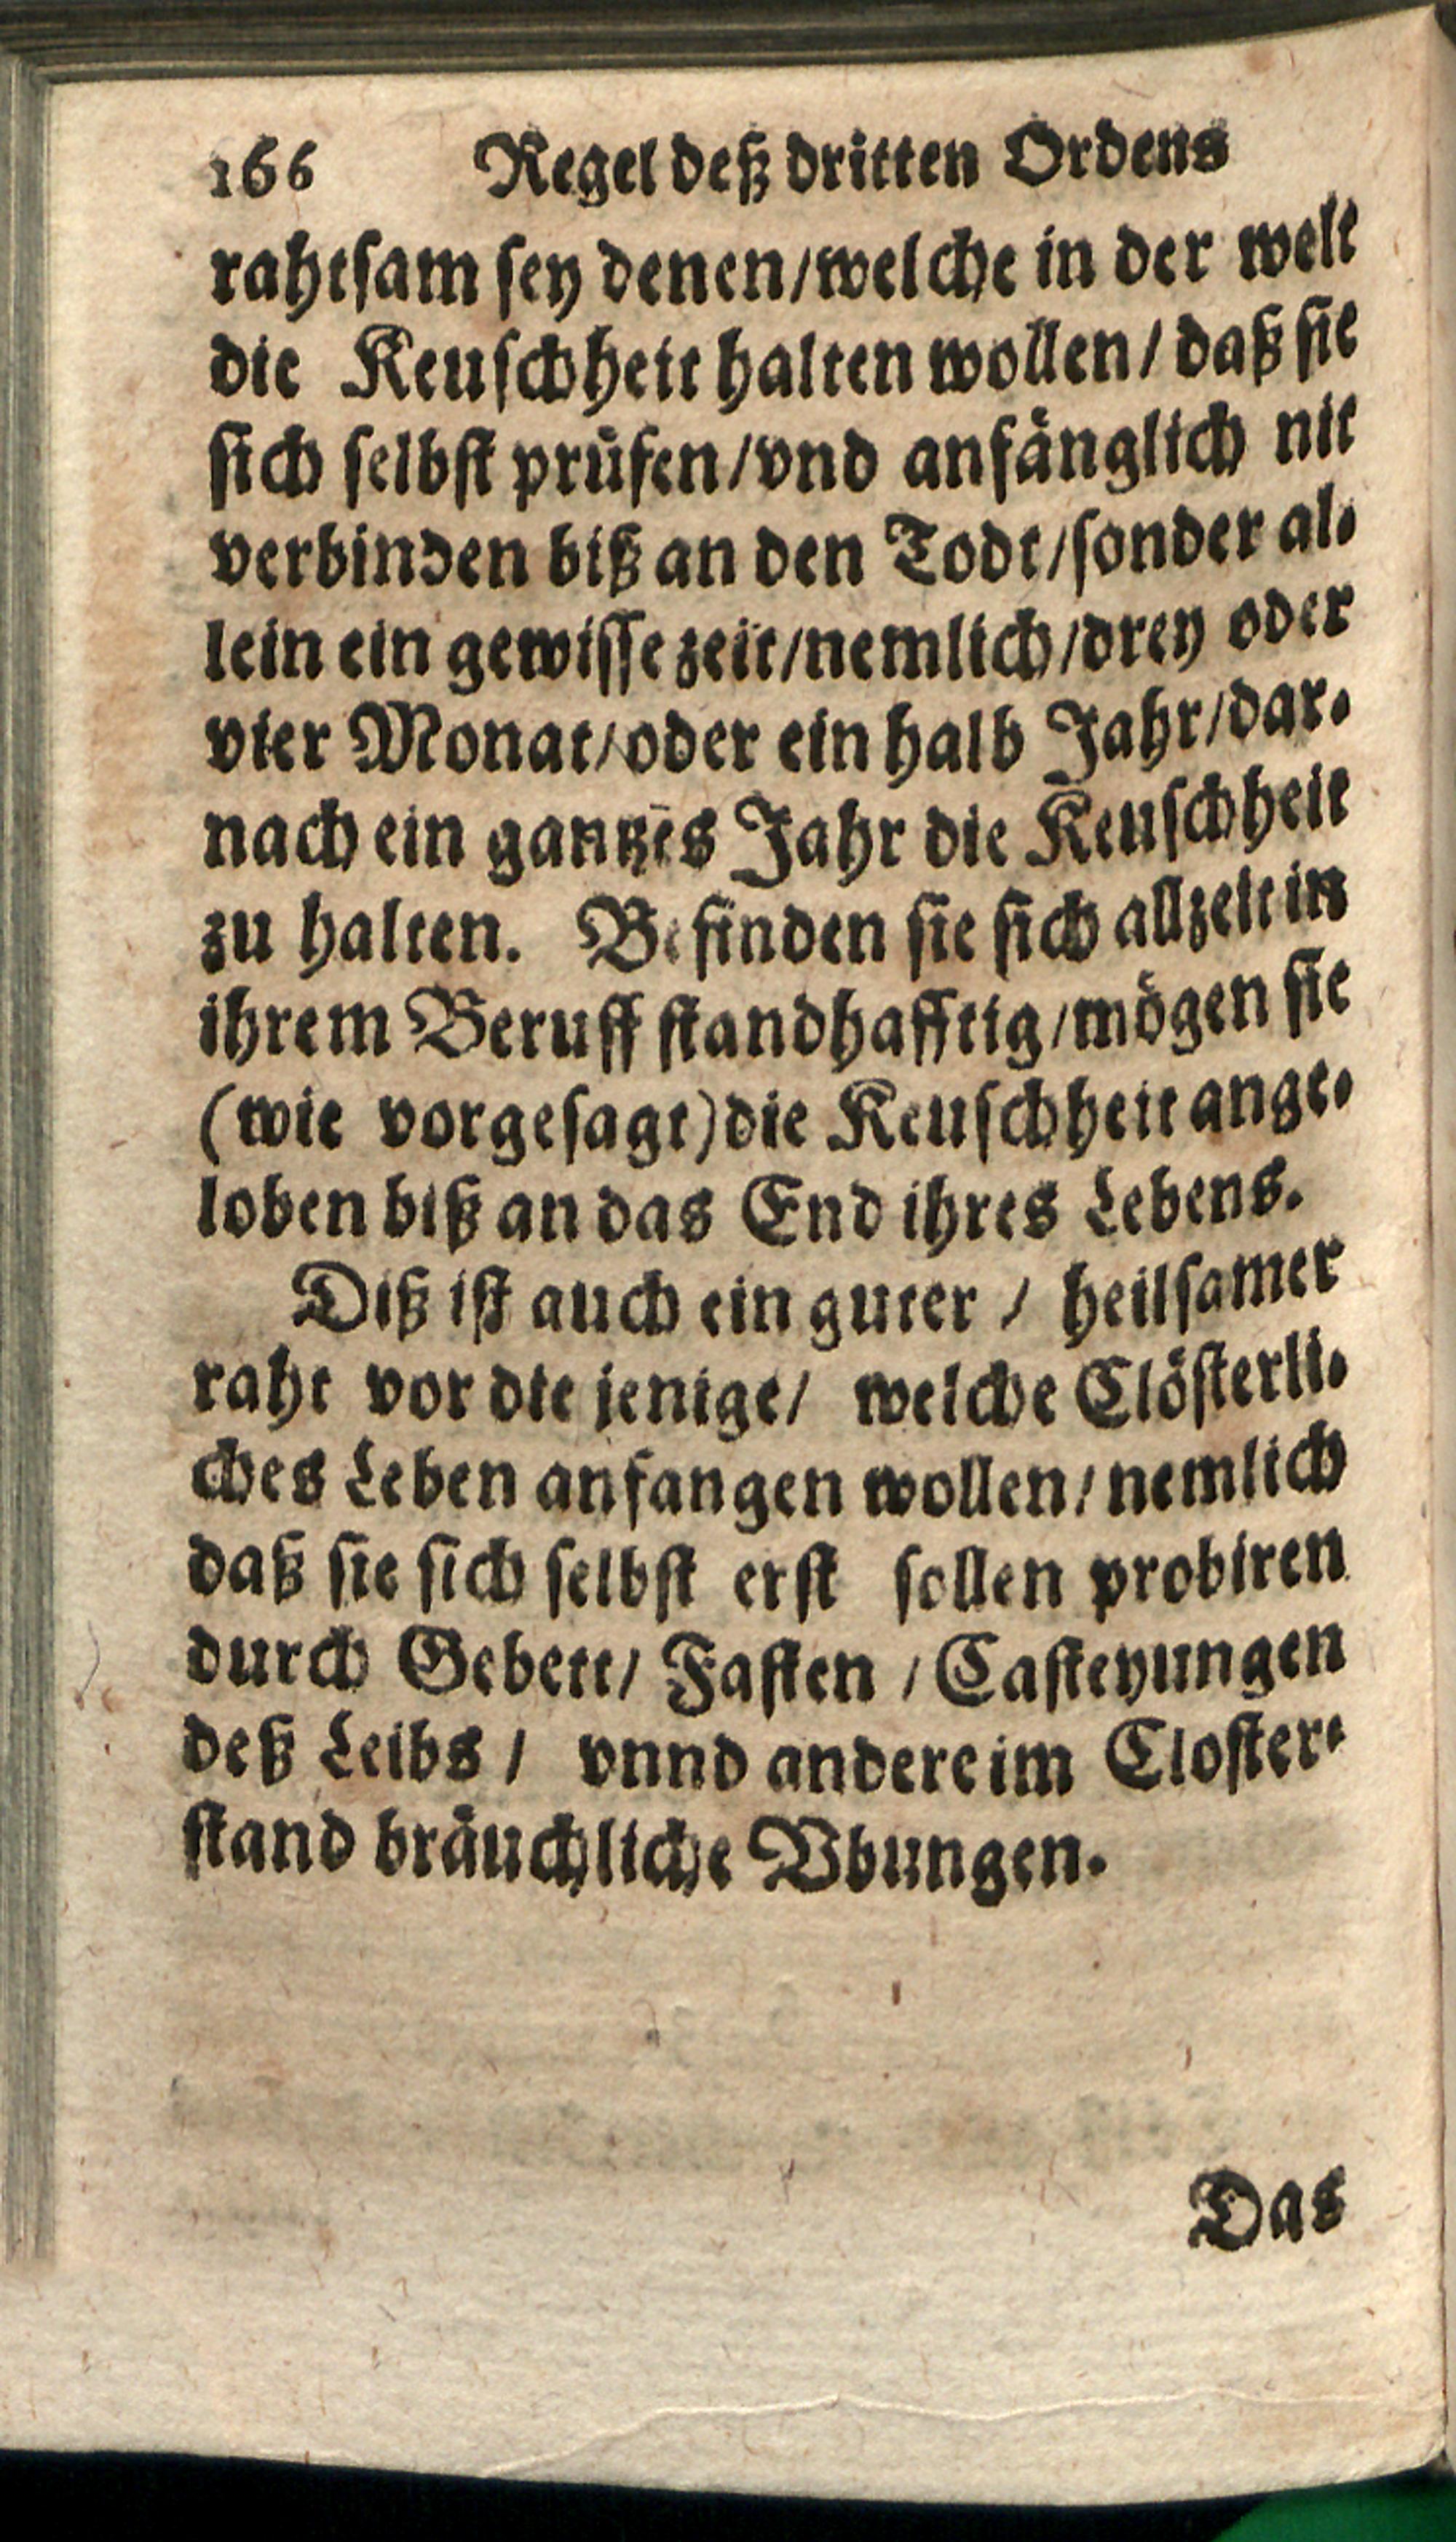 166 Regel deß dritten Ordens
rahtsam sey denen/welche in der welt
die Keuschheit halten wollen/ daß sie
sich selbst prüfen/vnd anfänglich nit
verbinden biß an den Todt/sonder al-
lein ein gewisse zeit/nemlich/drey oder
vier Monat/oder ein halb Jahr/dar-
nach ein gantzes Jahr die Keuschheit
zu halten. Befinden sie sich allzeit in
ihrem Beruff standhafftig/mögen sie
(wie vorgesagt) die Keuschheit ange-
loben biß an das End ihres Lebens.
Diß ist auch ein guter / heilsamer
raht vor die jenige/ welche Clösterli-
ches Leben anfangen wollen/ nemlich
daß sie sich selbst erst sollen probiren
durch Gebett/ Fasten / Casteyungen
deß Leibs / vnnd andere im Closter-
stand bräuchliche Vbungen.
Das